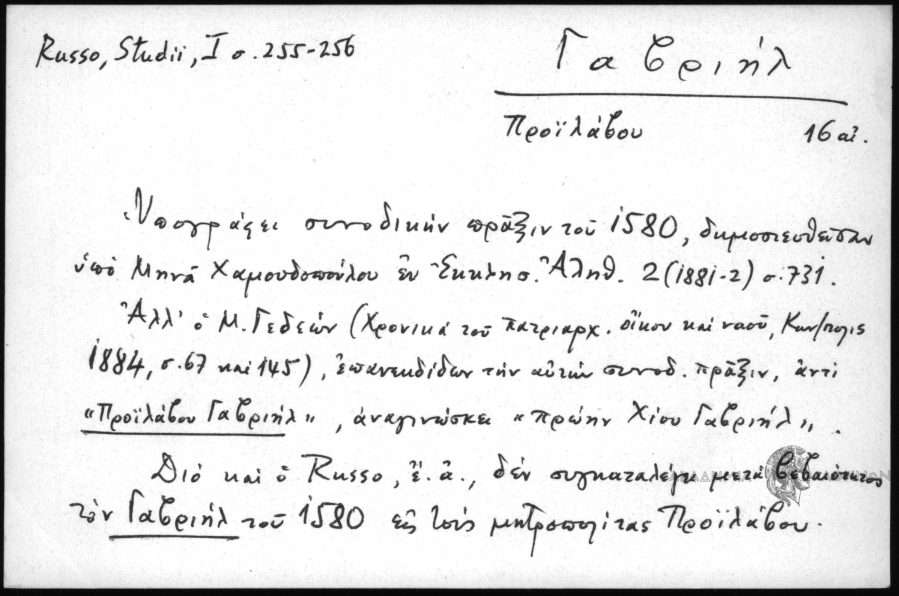 Russo, Studii, I σ. 255-256
Γαβριήλ
Προϊλάβου 16 αἰ.
Ὑπογράφει συνοδικὴν πρᾶξιν τοῦ 1580, δημοσιευθεῖσαν
ὑπὸ Μηνᾶ Χαμουδοπούλου ἐν Ἐκκλησ. Ἀληθ. 2 (1881-2) σ. 731.
Ἀλλ' ὁ Μ. Γεδεών (Χρονικά τοῦ πατριαρχ. οἴκου καὶ ναοῦ, Κων/πολις
1884, σ. 67 καὶ 145), ἐπανεκδίδων τὴν αὐτὴν συνοδ. πρᾶξιν, ἀντὶ
«Προϊλάβου Γαβριήλ», ἀναγινώσκει «πρώην Χίου Γαβριήλ».
Διὸ καὶ ὁ Russo, ἔ.ἀ., δὲν συγκαταλέγει μετὰ βεβαιότητος
τὸν Γαβριὴλ τοῦ 1580 εἰς τοὺς μητροπολίτας Προϊλάβου.